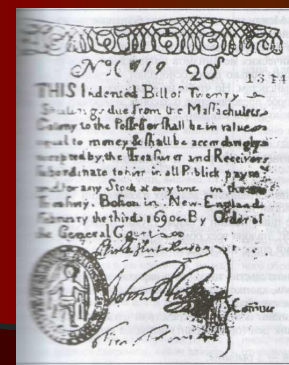 No( 919 20s 1344
THIS Indented Bill of Twenty
Shillings due from the Massachusets
Colony to the Possessor shall be in value
equal to money & shall be accordingly
accepted by the Treasurer and Receivers
subordinate to him in all Publick paym.ts
and for any Stock at any time in the
Treasury. Boston in New-England
February the third 1690. By Order of
the General Court
Comittee